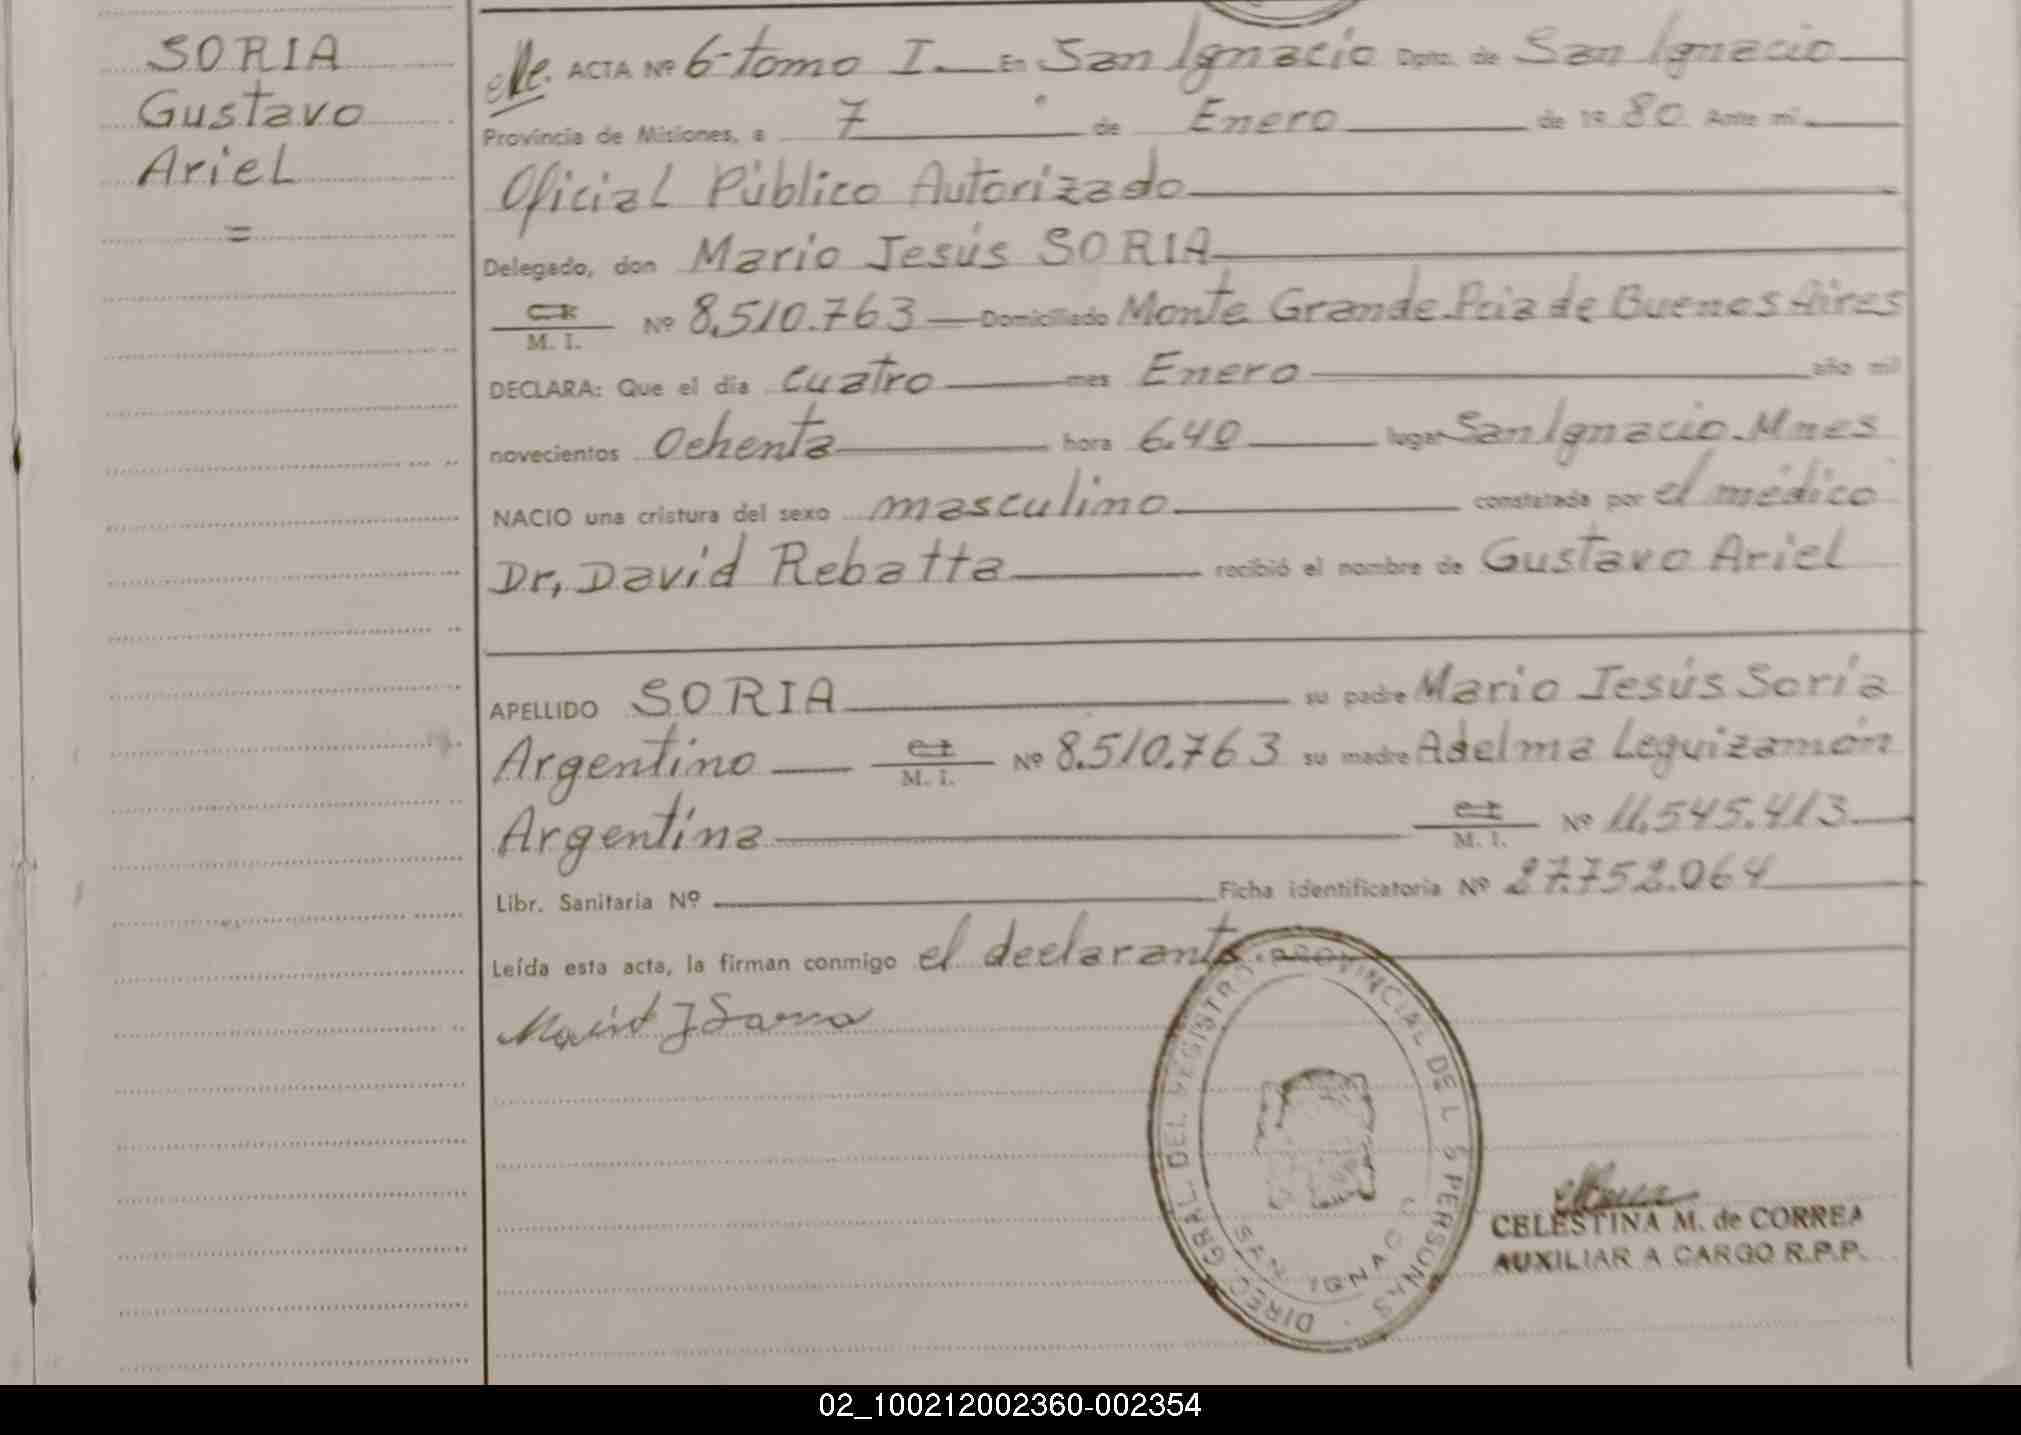 SORIA
Gustavo
Ariel
=
ACTA Nº 6-tomo I. En San Ignacio Dpto. de San Ignacio
Provincia de Misiones, a 7 de Enero de 1980 Ante mi
Oficial Público Autorizado
Delegado, don Mario Jesús SORIA
M. I. Nº 8.510.763 Domiciliado Monte Grande-Pcia de Buenos Aires
DECLARA: Que el día cuatro mes Enero año mil
novecientos Ochenta hora 6.40 lugar San Ignacio-Mnes
NACIO una criatura del sexo masculino constatada por el médico
Dr, David Rebatta recibió el nombre de Gustavo Ariel
APELLIDO SORIA su padre Mario Jesús Soria
Argentino M. I. Nº 8.510.763 su madre Adelma Leguizamón
Argentina M. I. Nº 11.545.413
Libr. Sanitaria Nº Ficha identificatoria Nº 27.752.064
Leída esta acta, la firman conmigo el declarante
DIREC. GRAL. DEL REGISTRO PROVINCIAL DE LAS PERSONAS
SAN IGNACIO
CELESTINA M. de CORREA
AUXILIAR A CARGO R.P.P.
02_100212002360-002354